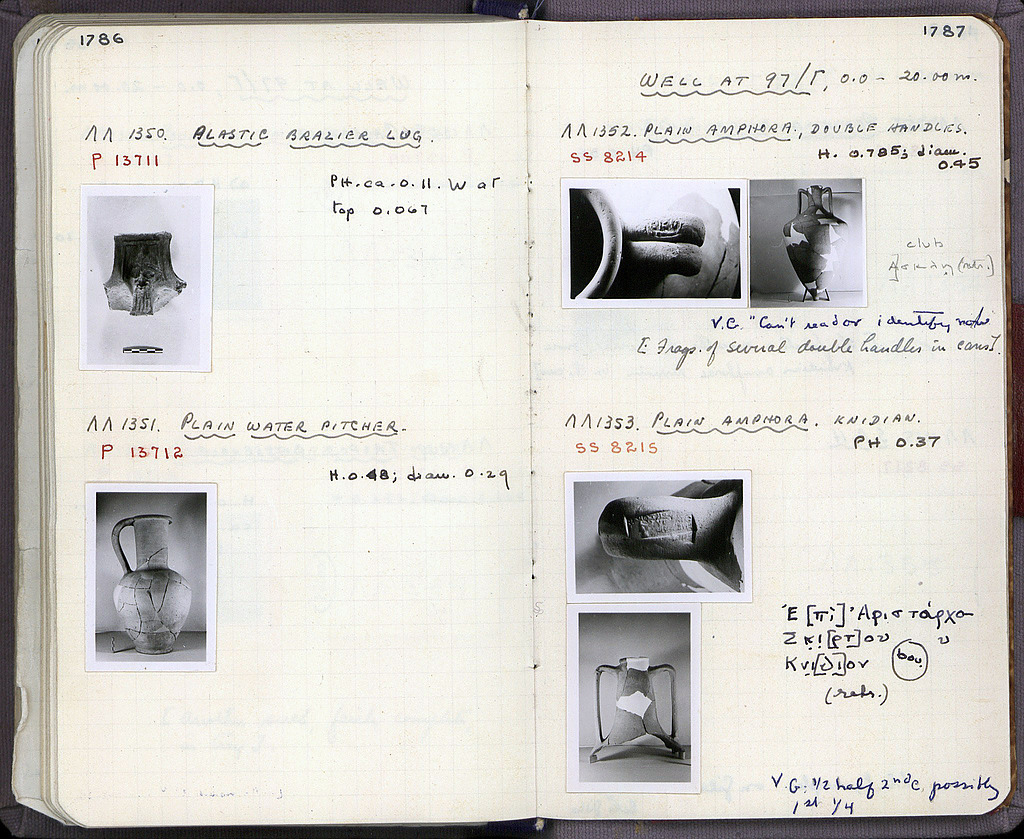 1786
ΛΛ 1350. PLASTIC BRAZIER LUG.
P 13711
PH. ca. 0.11. W at
top 0.067
ΛΛ 1351. PLAIN WATER PITCHER.
P 13712
H. 0.48; diam. 0.29
1787
WELL AT 97/Γ, 0.0 - 20.00 m.
ΛΛ 1352. PLAIN AMPHORA, DOUBLE HANDLES.
SS 8214
H. 0.785; diam.
0.45
club
(retr.)
V.G. "Can't read or identify
[ Frags. of several double handles in cans].
ΛΛ 1353. PLAIN AMPHORA. KNIDIAN.
SS 8215
PH 0.37
Ἐ[πὶ] Ἀριστάρχο
υ
Σκι[ρτ]ου
Κνι[δι]ον
bou.
(retr.)
V.G. 1/2 half 2nd c, possibly
1st 1/4